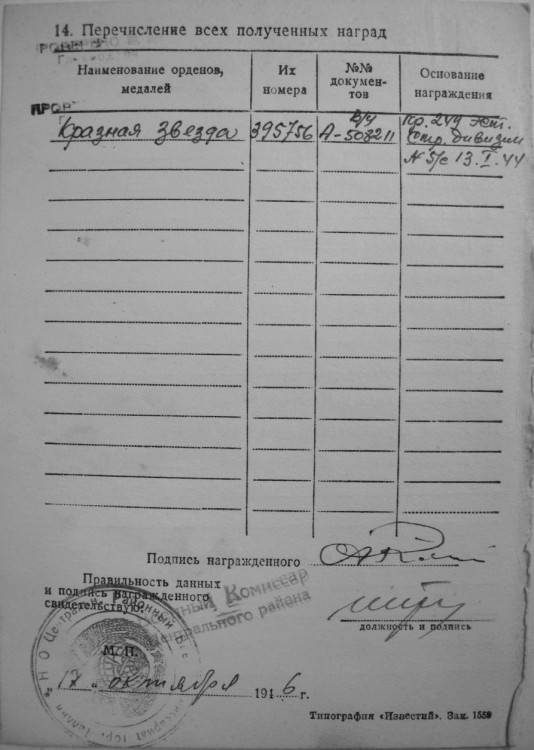 14. Перечисление всех полученных наград
ПРОВЕРЕНО
Наименование орденов, медалей
Их номера
№№ докумен-тов
Основание награждения
Кразная звезда 395756 А-508211 Пр. 249 Эст.
Стр. дивизии
N 5/с 13.I.44
Подпись награжденного
Правильность данных
и подпись награжденного
свидетельствую:
Комиссар
Центрального района
должность и подпись
М. П.
"17" октября 1946 г.
Типография «Известий». Зак. 1559